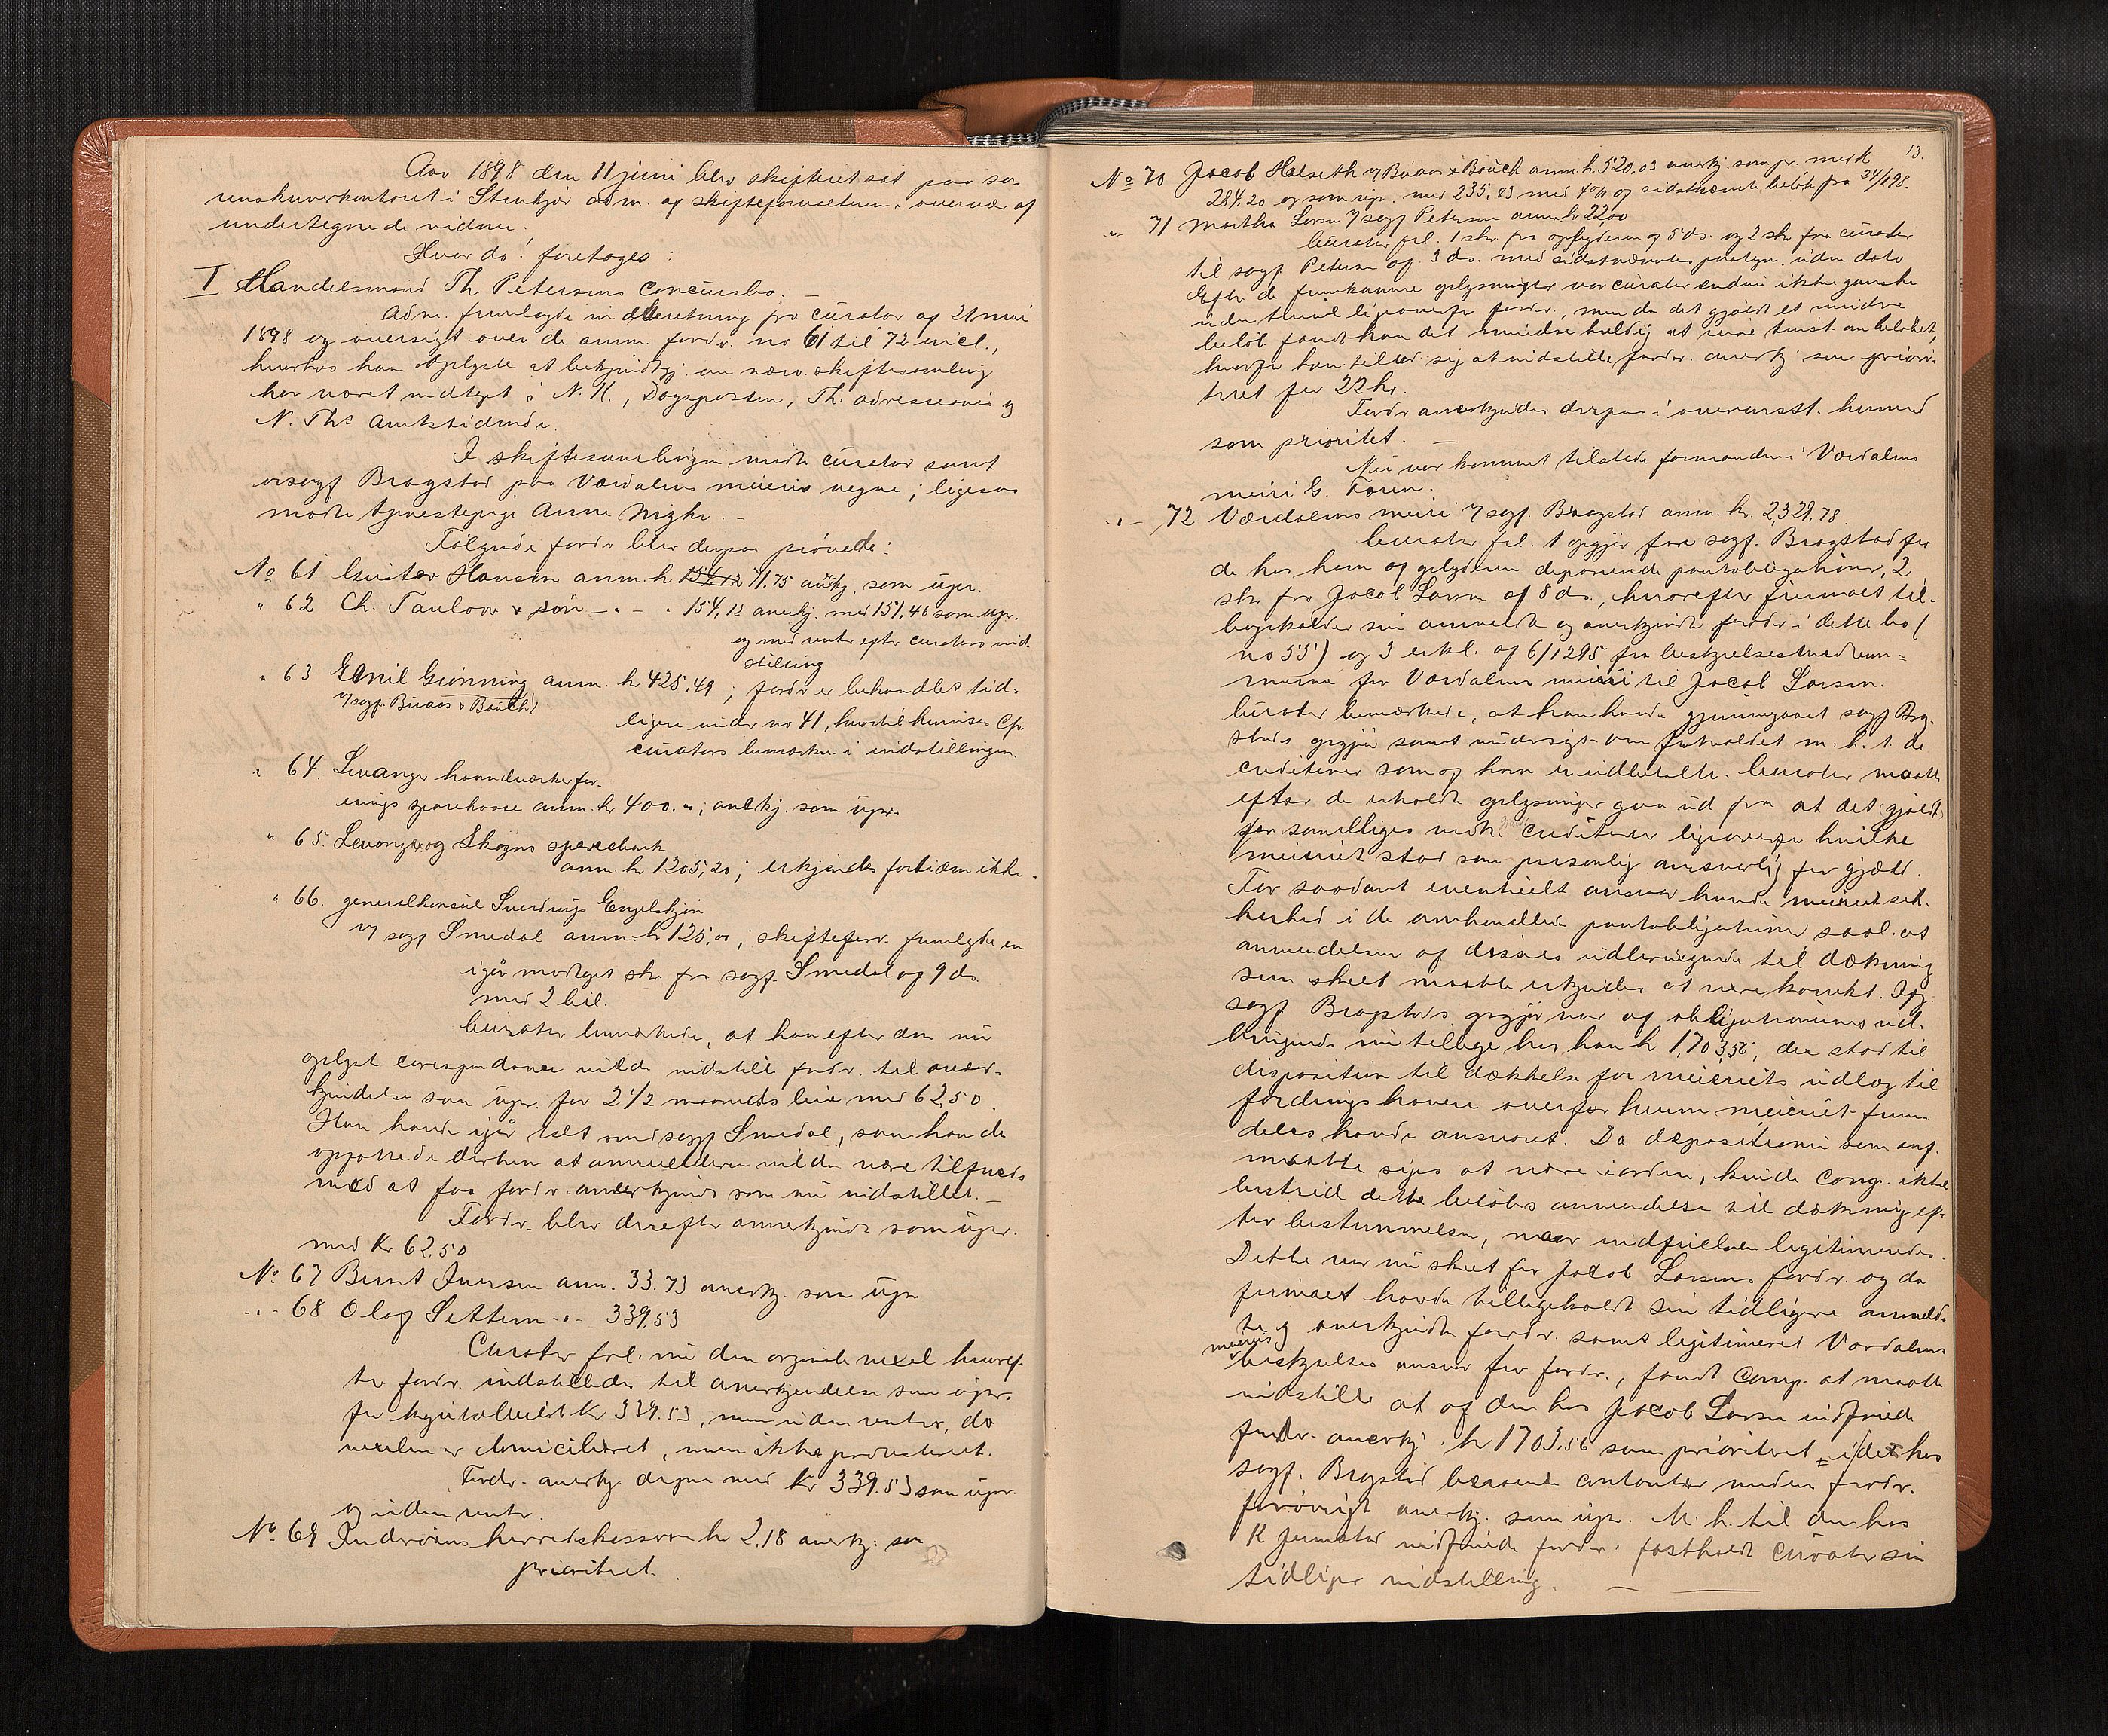 Aar 1898 den 11 juni blev skifteret sat paa so-
renskriverkontoret i Stenkjær adm. af skifteforvalteren i overvær af
undertegnede vidner.
Hvor da! foretages:
I Handelsmand Th Petersens concursbo. —
Adm. fremlagde indberetning fra curator af 21 mai
1898 og oversigt over de anm. fordr. no 61 til 72 incl.,
hvorhos han oplyste at bekjendtgj. om nærv. skiftesamling
har været indtaget i N. K., Dagsposten, Th. adresseavis og
N. Ths Amtstidende.
I skiftesamlingen mødte curator samt
ovsagf Bragstad paa Værdalens meieris vegne; ligesaa
mødte tjenestepige Anne
Følgende fordr blev derpaa prøvede:
No 61 Gustav Hansen anm. kr 154.12 71.75 anerkj. som upr.
" 62 Ch. Taulow & søn — " — " 154,12 anerkj. med 151,46 som upr.
og med renter efter curators ind-
stilling
" 63 Emil Grønning anm. kr 425,49; fordr er behandlet tid-
v/ sagf. Buaas & Bauck!
ligere under no 41, hvortil henvises Cfr
curators bemærkn. i indstillingen.
" 64. Levanger haandværkerfor-
enings sparekasse anm. kr 400. "; anerkj. som upr.
" 65. Levanger og Skogns sparebank
anm. kr 1205,20; erkjendes fortiden ikke.
" 66. generalkonsul Sverdrup Engelskjøn
v/ sagf Smedal anm. kr 125,00; skifteforv. fremlagde en
igår modtaget skr. fra sagf. Smedal af 9 ds.
med 2 bil.
Curator bemærkede, at han efter den nu
oplyst corespondance vilde indstille fordr. til aner-
kjendelse som upr. for 2 1/2 maaneds leie med 62,50.
Han havde igår talt med sagf Smedal, som han da
opfattede derhen at anmelderen vilde være tilfreds
med at faa fordr. anerkjendt som nu indstillet. —
Fordr. blev derefter anerkjendt som upr.
med Kr 62,50
No 67 Bernt Iversen anm. 33.73 anerkj. som upr
-"- 68 Olaf Settem -"- 339.53
Curator frl. nu den orginale vexel hvoref-
ter fordr. indstilledes til anerkjendelse som upr.
for kapitalbeløb Kr 339.53, men uden renter, da
vexelen er domicilieret, men ikke protesteret.
Fordr. anerkj. derpaa med Kr 339.53 som upr.
og uden renter.
No 69 Inderøens herredskasserer kr 2,18 anerkj. som
prioritet.
13.
No 70 Jacob Halseth v/ Buaas & Bauck anm. kr 520,03 anerkj. som pr. med kr
284,20 og som upr. med 235,83 med 4% af sidstnævnte beløb fra 24/1 98.
-"- 71 Martha Larsen v/ sagf Petersen anm. kr 22,00
Curator frl. 1 skr. fra opfyderen af 5 ds. og 2 skr fra curator
til sagf Petersen af 3 ds. med sidstnævntes paategn. uden dato
Efter de fremkomne oplysninger var curator endnu ikke ganske
uden tvivl ligeoverfor fordr., men da det gjaldt et mindre
beløb fandt han det mindre heldig at reise tvist om beløbet,
hvorfor han tillod sig at indstille fordr. anerkj. som priori-
teret for 22 kr.
Fordr anerkjendes derpaa i overensst. hermed
som prioritet. —
Nu var kommet tilstede formanden i Værdalens
meieri G. Faren.
-"- 72 Værdalens meieri v/ sagf. Bragstad anm. kr. 2,329,78.
Curator frl. 1 opgjør fra sagf. Bragstad for
de hos ham af opfyderen deponerede pantobligationer, 2
skr. fra Jacob Larsen af 8 ds., hvorefter firmaet til-
bagekalder sin anmeldte og anerkjendte fordr i dette bo (
no 55) og 3 erkl. af 6/12 95 fra bestyrelsesmedlem-
merne for Værdalens meieri til Jacob Larsen.
Curator bemærkede, at han havde gjennemgaaet sagf Brag-
stads opgjør samt undersøgt om forholdet m. h. t. de
creditorer som af ham er udbetalte. Curator maatte
efter de erholdte oplysninger gaa ud fra at det gjaldt
for samtliges vedk. creditorer ligeoverfor hvilke
meieriet stod som personlig ansvarlig for gjæld.
For saadant eventuelt ansvar havde meieriet sik-
kerhed i de omhandlede pantobligationer saal. at
anvendelsen af disses udbringende til dækning
som skeet maatte erkjendes at være korrekt. Ifg.
sagf Bragstads opgjør var af obligationernes ud-
bringende nu tilbage hos ham kr 1,703,56, der stod til
disposition til dækkelse for meieriets udlæg til
fordringshavere overfor hvem meieriet frem-
deles havde ansvaret. Da depositionen som anf.
maatte siges at være iorden, kunde conc. ikke
bestride dette beløbs anvendelse til dækning ef-
ter bestemmelsen, naar indfrielsen legitimeredes.
Dette var nu skeet for Jacob Larsens fordr. og da
firmaet havde tilbagekaldt sin tidligere anmeld-
te og anerkjendte fordr. samt legitimeret Værdalens
meieris bestyrelses ansvar for fordr., fandt comp. at maatte
indstille at af den hos Jacob Larsen indfriede
fordr. anerkj. kr 1703,56 som prioriteret i det hos
sagf. Bragstad beroende contanter meden fordr.
forøvrigt anerkj. som upr. M. h. til den hos
K Jermstad indfriede fordr. fastholdt curator sin
tidligere indstilling. —